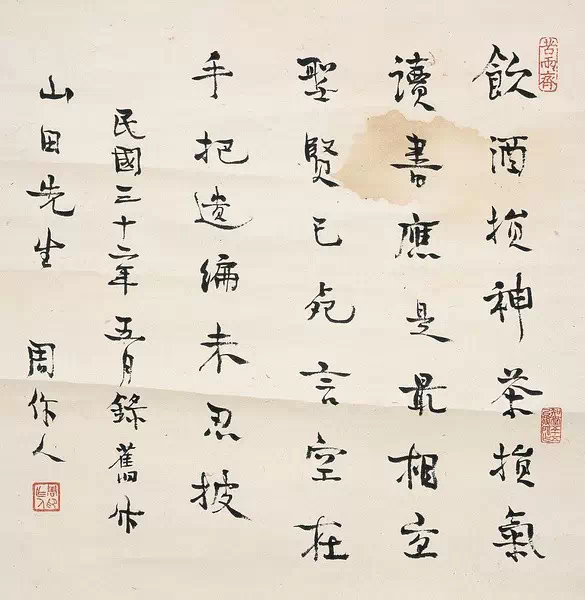 苦雨齋
飲酒損神茶損氣
讀書應是最相宜
聖賢已死言空在
手把遺編未忍披
民國三十二年五月錄舊作
山田先生 周作人